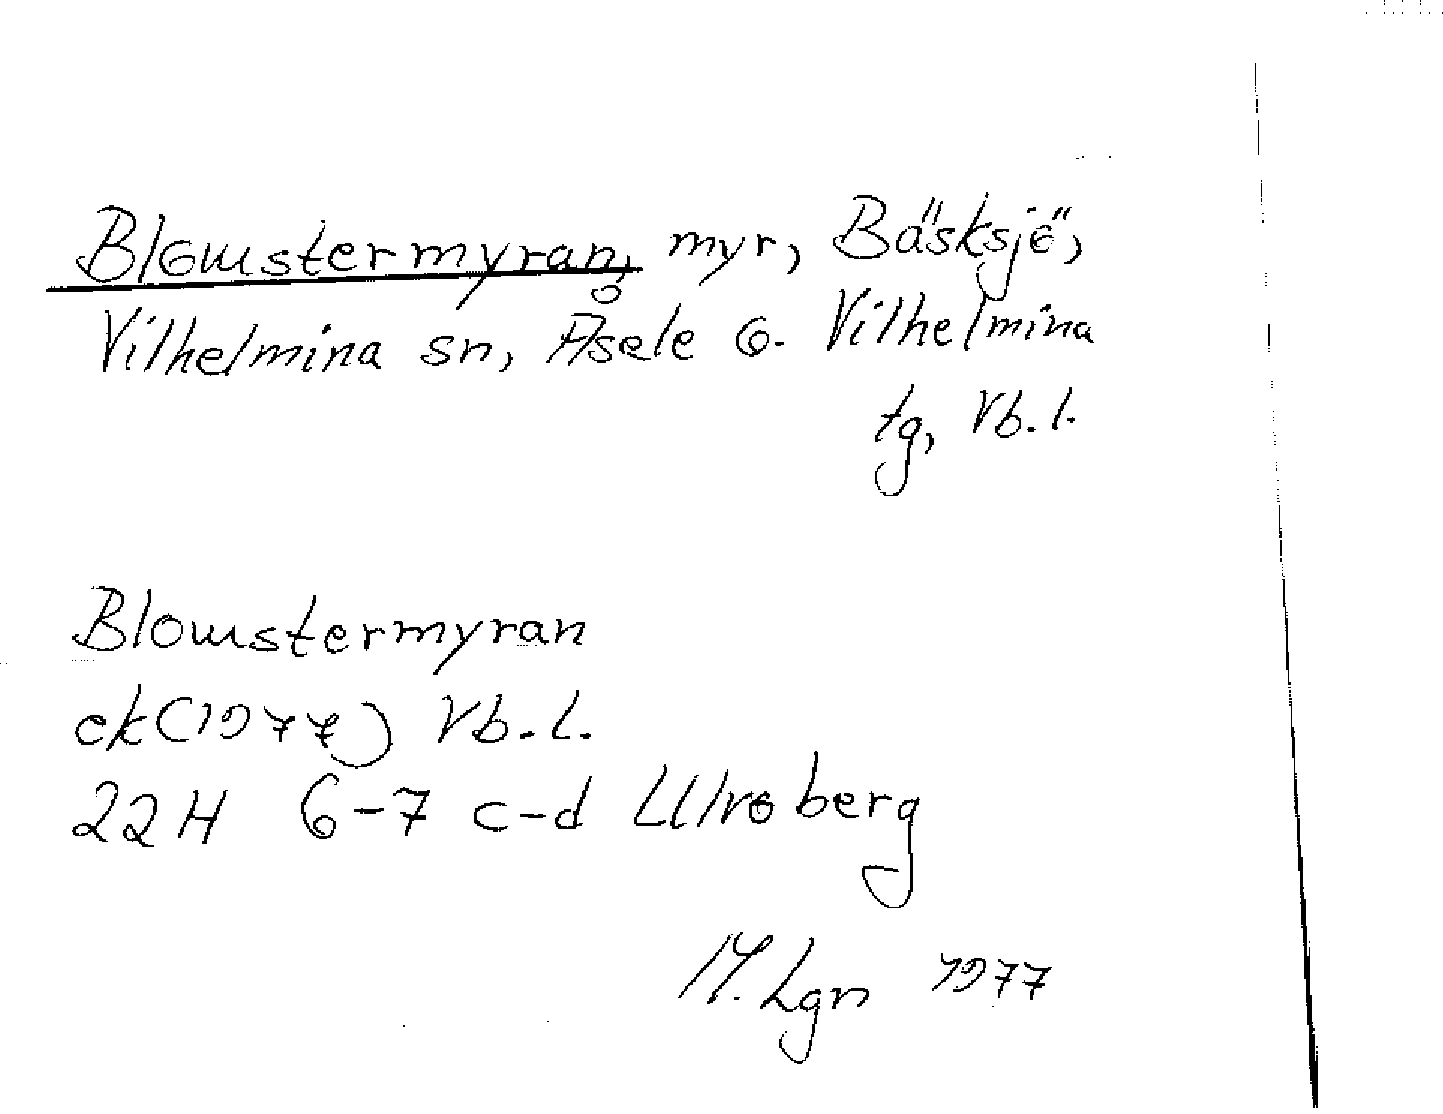 Blomstermyran, myr, Bäsksjö,
Vilhelmina sn, Åsele o. Vilhelmina
tg, Vb. l.
Blomstermyran
ek (1977) Vb. l.
22H 6-7 c-d Ulvoberg
M. Lgn 1977